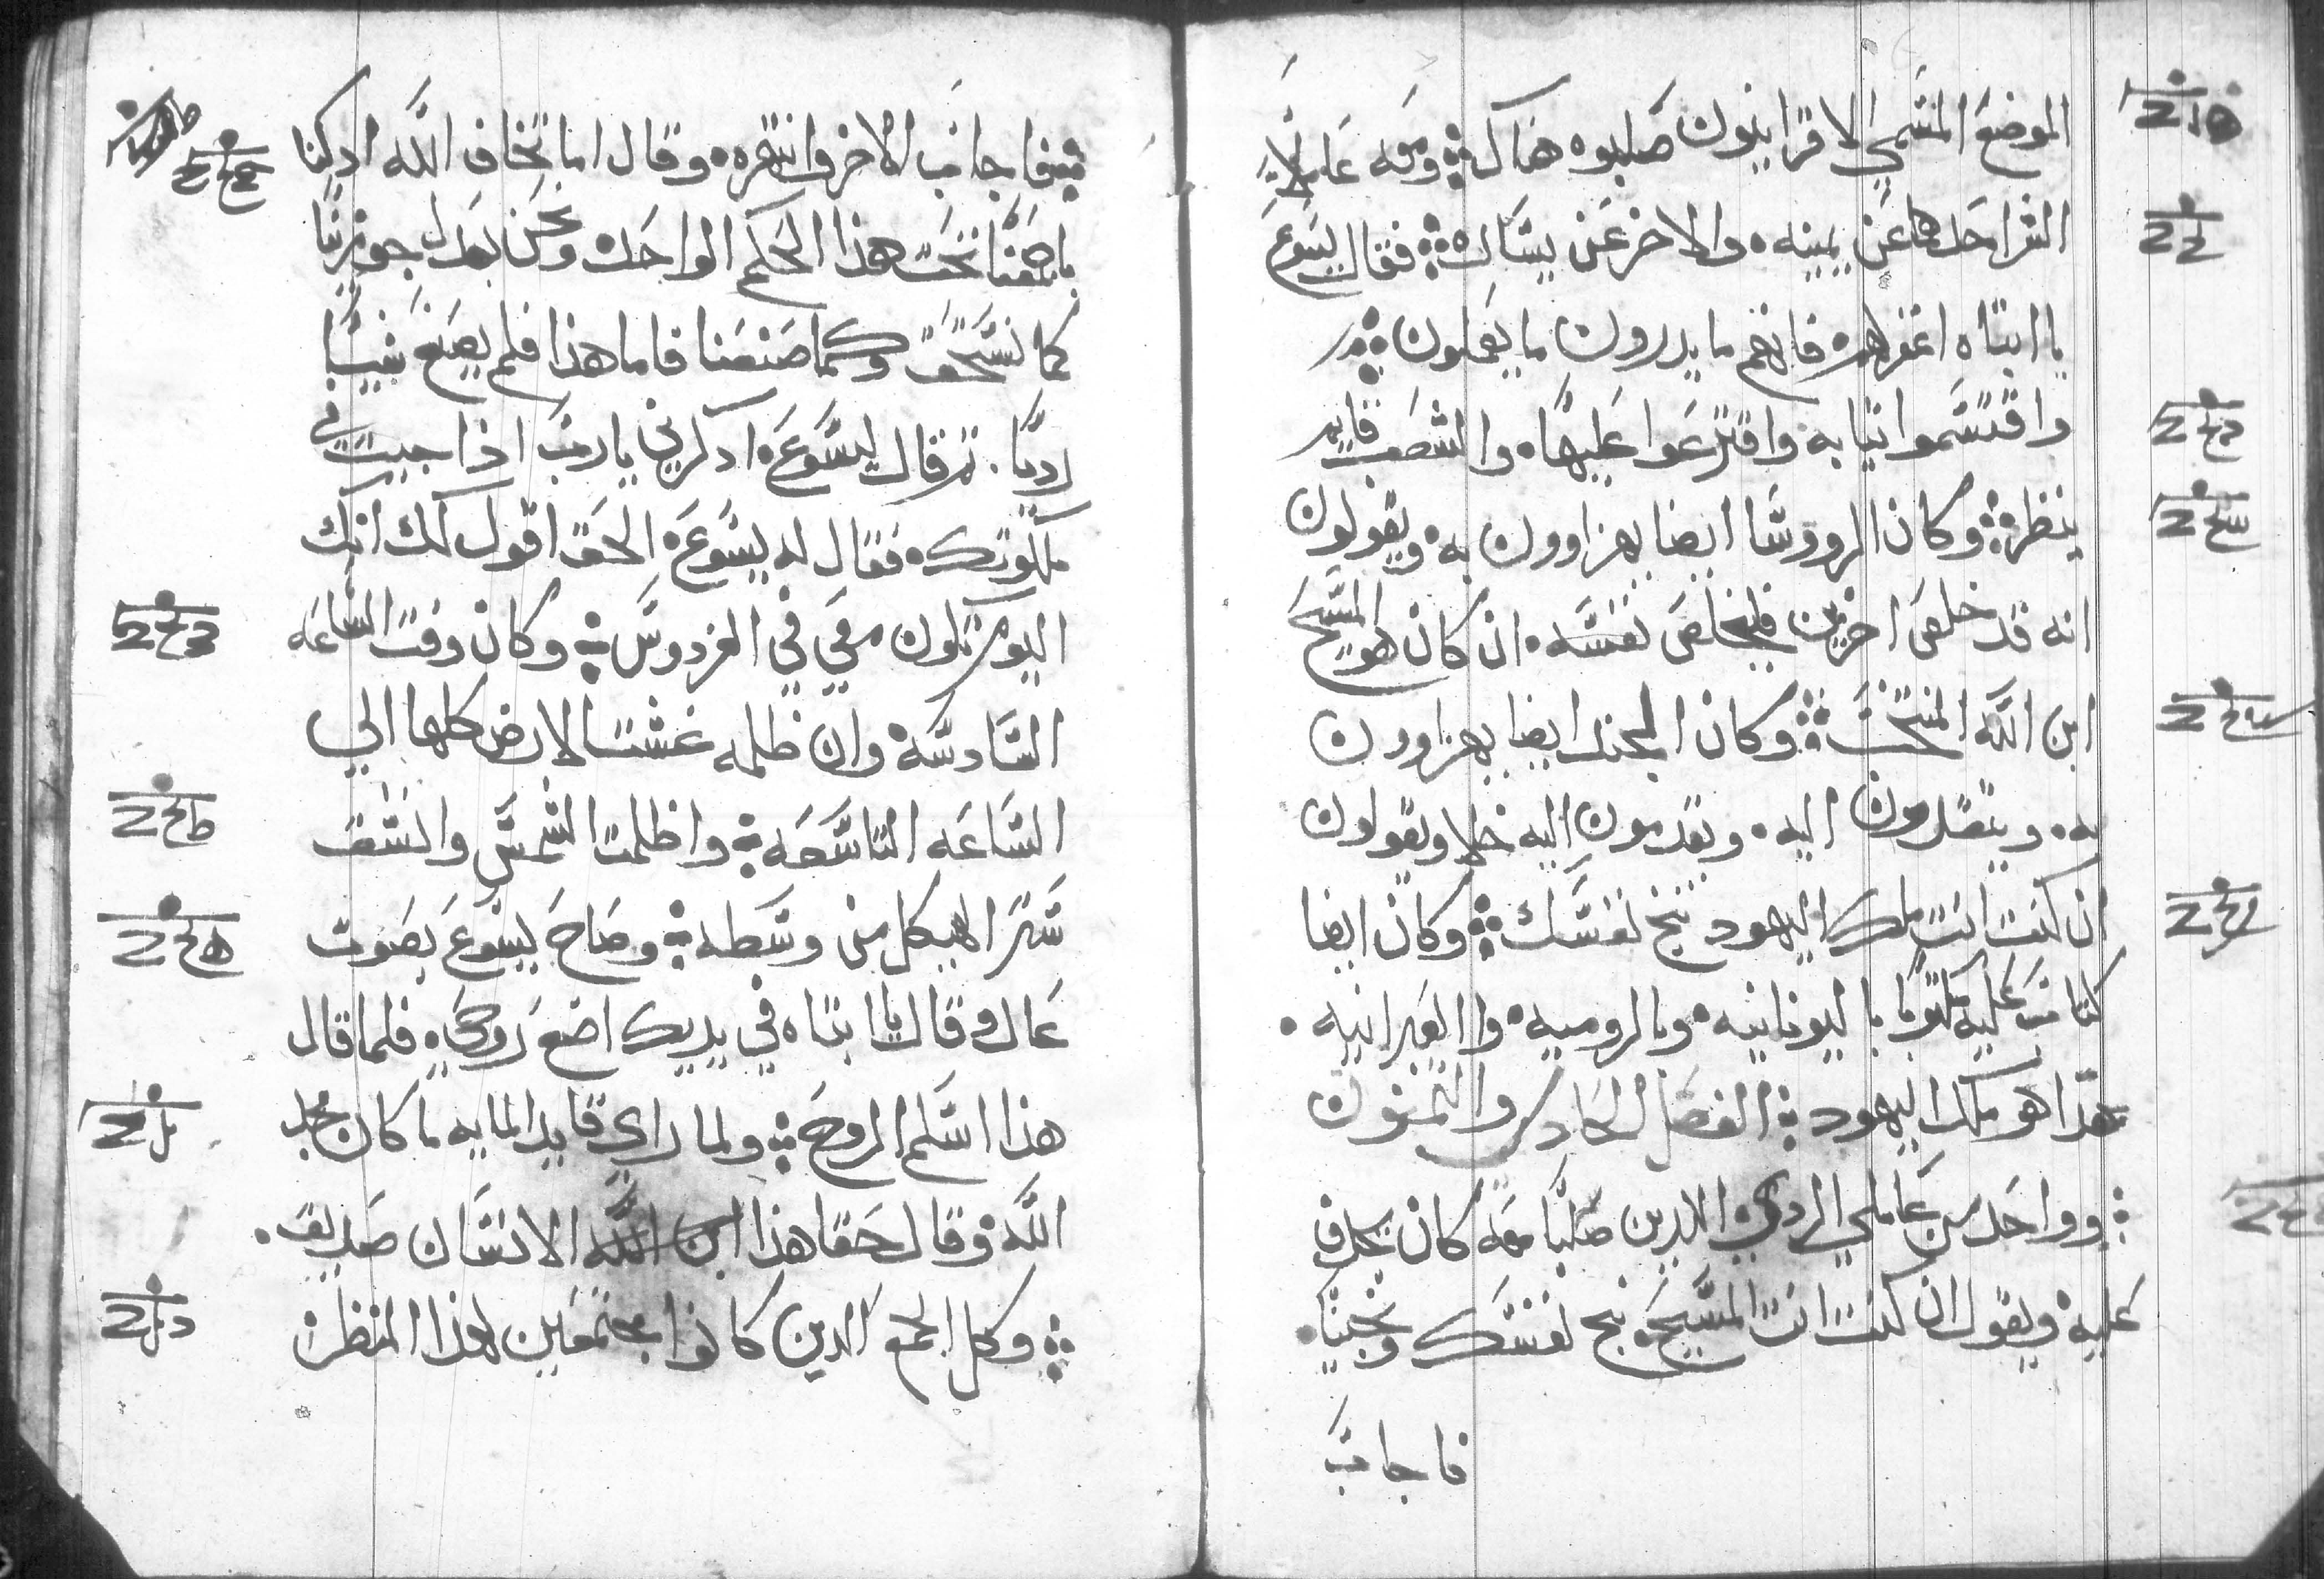 الموضع المسمي الاقرانيون صلبوه هناك ومعه عاملا
الشر احدهما عن يمينه والاخر عن يساره فقال يسوع
يا ابتاه اغفر لهم فانهم ما يدرون ما يفعلون
واقتسموا ثيابه واقترعوا عليها والشعب قايم
ينظر وكان الروسا ايضا يهزاوون به ويقولون
انه قد خلص اخرين فليخلص نفسه ان كان هو المسيح
ابن الله المنتخب وكان الجند ايضا يهزاوون
به ويتقدمون اليه ويقدمون اليه خلا ويقولون
ان كنت انت ملك اليهود نج نفسك وكان ايضا
كتاب عليه مكتوبا باليونانيه وبالروميه والعبرانيه
هذا هو ملك اليهود الفصل الحادي والثمنون
وواحد من عاملي الردي الذين صلبا معه كان يجدف
عليه ويقول ان كنت انت المسيح نج نفسك ونجينا
فاجاب
فاجاب الاخر وانتهره وقال اما تخاف الله اذ كنا
باجمعنا تحت هذا الحكم الواحد ونحن بعدل جوزينا
كما نستحق وكما صنعنا فاما هذا فلم يصنع شيا
رديا ثم قال ليسوع اذكرني يا رب اذا جيت في
ملكوتك فقال له يسوع الحق اقول لك انك
اليوم تكون معي في الفردوس وكان وقت الساعه
السادسه وان ظلمه غشت الارض كلها الي
الساعه التاسعه واظلمت الشمس وانشق
ستر الهيكل من وسطه وصاح يسوع بصوت
عال وقال يا ابتاه في يديك اضع روحي فلما قال
هذا اسلم الروح ولما راي قايد المايه ما كان مجد
الله وقال حقا هذا ابن الله الانسان صديق
وكل الجمع الذين كانوا مجتمعين لهذا المنظر